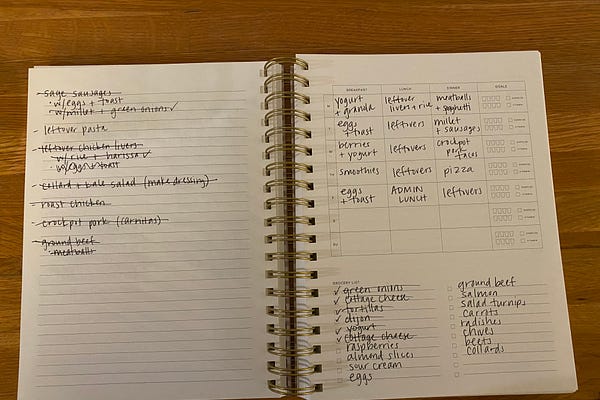 - sage sausages
· w/eggs + toast
· w/millet + green onions ✓
- leftover pasta
- leftover chicken livers
· w/rice + harissa ✓
· w/eggs + toast
- collard + kale salad (make dressing)
- roast chicken
- crockpot pork (carnitas)
- ground beef
- meatballs
BREAKFAST LUNCH DINNER GOALS
yogurt + granola leftover livers + rice meatballs + spaghetti
eggs + toast leftovers millet + sausages
berries + yogurt leftovers crockpot pork tacos
smoothies leftovers pizza
eggs + toast ADMIN LUNCH leftovers
GROCERY LIST
✓ green onions
✓ cottage cheese
✓ tortillas
✓ dijon
✓ yogurt
✓ cottage cheese
raspberries
almond slices
sour cream
eggs
ground beef
salmon
salad turnips
carrots
radishes
chives
beets
collards